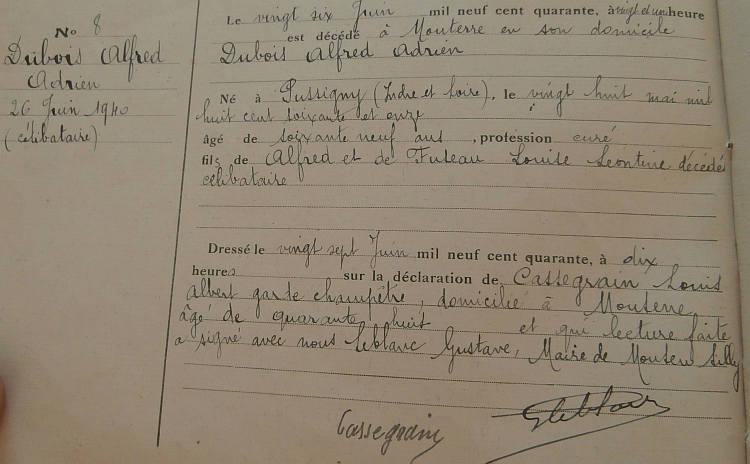 No 8
Dubois Alfred
Adrien
26 Juin 1940
(célibataire)
Le vingt six Juin mil neuf cent quarante, à vingt et un heure
est décédé à Mouterre en son domicile
Dubois Alfred Adrien
Né à Pussigny (Indre et Loire), le vingt huit mai mil
huit cent soixante et onze
âgé de soixante neuf ans, profession curé
fils de Alfred et de Futeau Louise Leontine décédés
célibataire
Dressé le vingt sept Juin mil neuf cent quarante, à dix
heures sur la déclaration de Cassegrain Louis
Albert garde champêtre, domicilié à Mouterre,
âgé de quarante huit et qui lecture faite
a signé avec nous Leblanc Gustave, Maire de Mouterre Silly
Cassegrain
GLeblanc